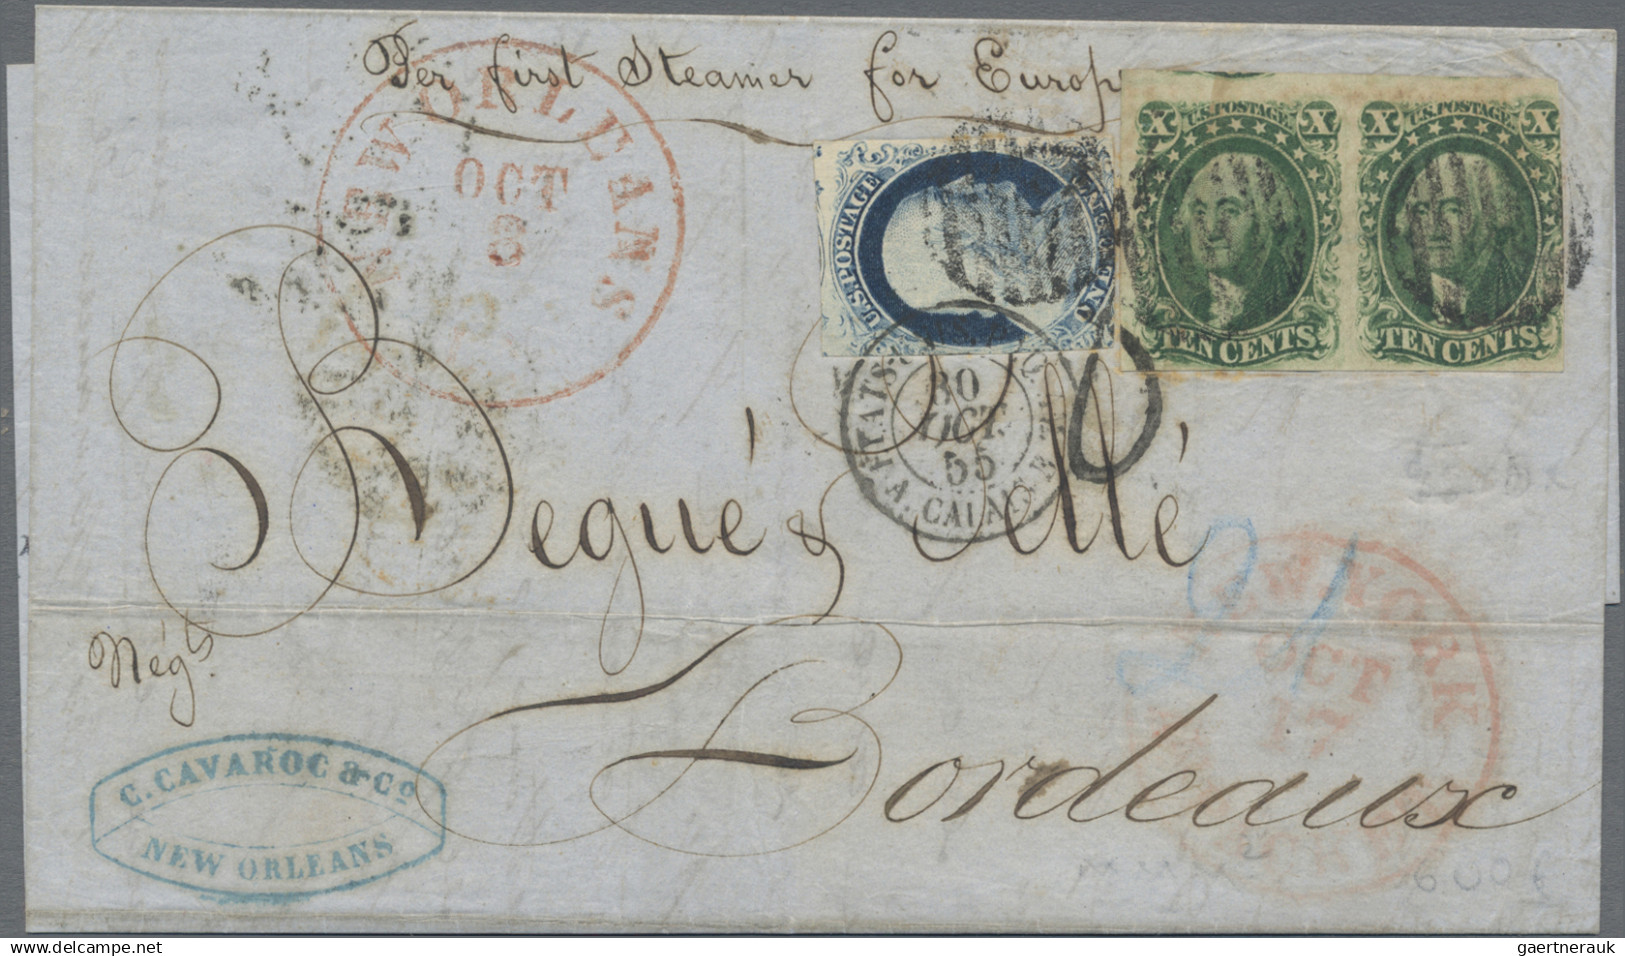 Per first Steamer for Europ
NEW ORLEANS
OCT
8
U.S. POSTAGE
ONE
X U.S. POSTAGE X
TEN CENTS
X U.S. POSTAGE X
TEN CENTS
30
OCT.
55
A. CALAIS
Begué &
Bordeaux
Nég.ts
21
NEW YORK
OCT
17
C. CAVAROC & Co
NEW ORLEANS
6.00
gaertnerauk